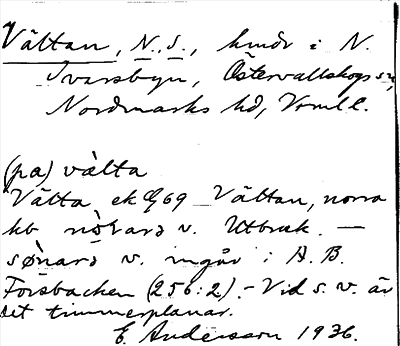 Vältan, N., S., hmdr i N.
Svarsbyn, Östervallskogs sn,
Nordmarks hd, Vrml l.
(pa) välta
Välta ek G 69 Vältan, norra
hb v. Utbruk. —
v. ingår i A. B.
Forsbacken (256:2). - Vid s. v. är
det timmerplanar.
E. Andersson 1936.